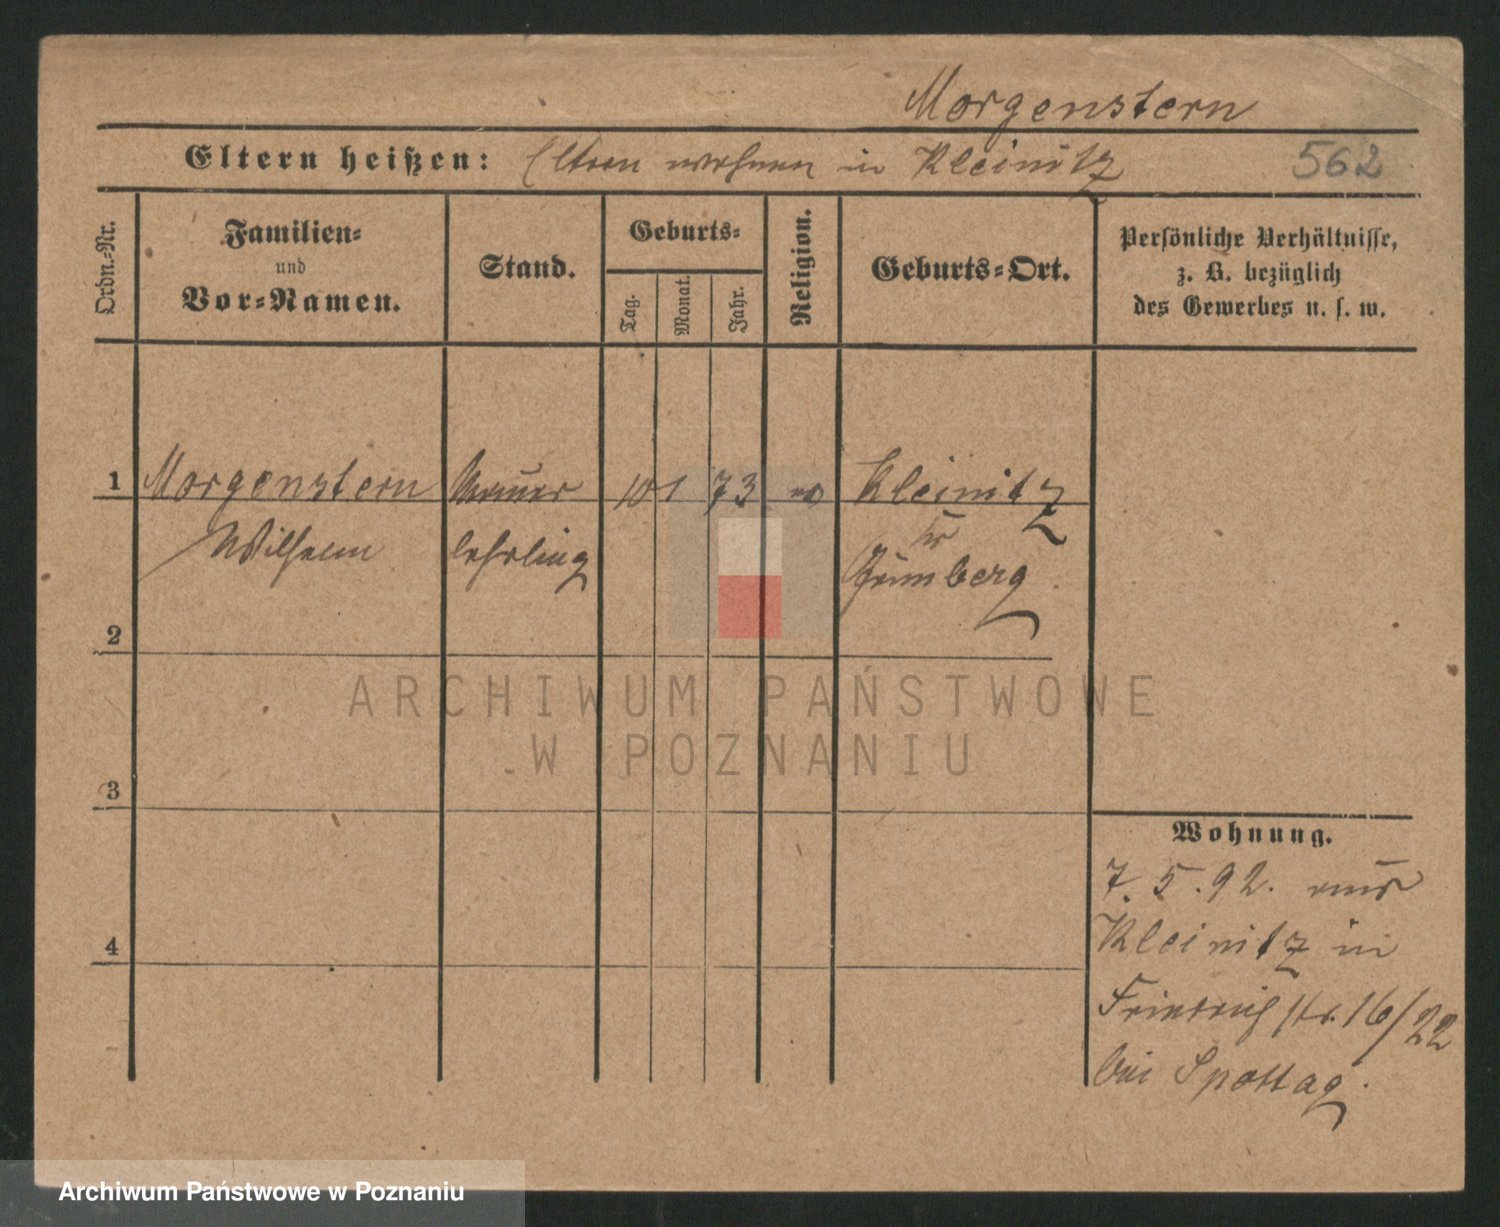 Morgenstern
Eltern heißen: Eltern wohnen in Kleinitz 562
Ordn.-Nr.
Familien-
und
Vor-Namen.
Stand.
Geburts-
Tag.
Monat.
Jahr.
Religion.
Geburts-Ort.
Persönliche Verhältnisse,
z. B. bezüglich
des Gewerbes u. s. w.
1 Morgenstern Maurer 10 1 73 Kleinitz
Wilhelm lehrling
Grünberg
2
3
4
Wohnung.
7. 5. 92. aus
Kleinitz in
Friedrichstr. 16/22
bei Spottag.
ARCHIWUM PAŃSTWOWE
W POZNANIU
Archiwum Państwowe w Poznaniu